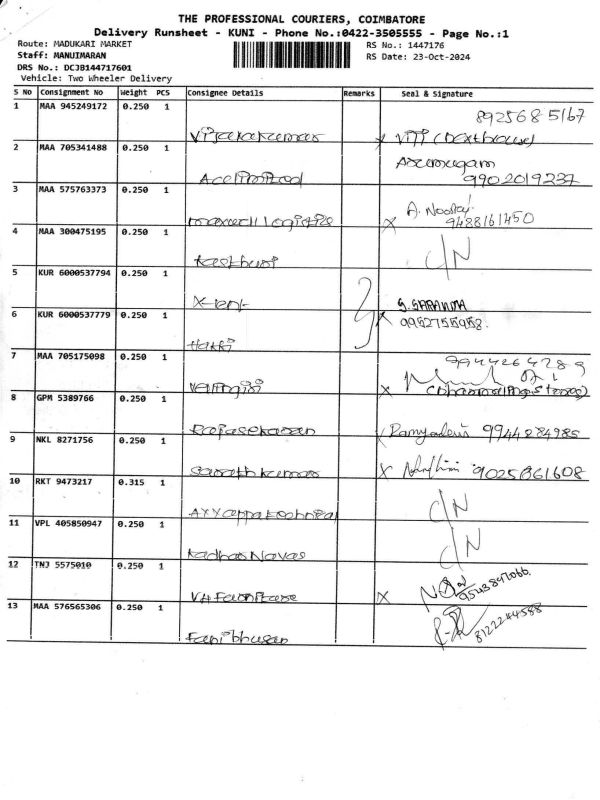 THE PROFESSIONAL COURIERS, COIMBATORE
Delivery Runsheet - KUNI - Phone No.:0422-3505555 - Page No.:1
Route: MADUKARI MARKET RS No.: 1447176
Staff: MANUIMARAN RS Date: 23-Oct-2024
DRS No.: DCJB144717601
Vehicle: Two Wheeler Delivery
S NO Consignment No Weight PCS Consignee Details Remarks Seal & Signature
1 MAA 945249172 0.250 1 8925685167
Vijayakumar x Viji
2 MAA 705341488 0.250 1 Arumugam
9902019237
3 MAA 575763373 0.250 1 A.
logistics x 9488161450
4 MAA 300475195 0.250 1 C/N
kasthuri
5 KUR 6000537794 0.250 1
S. SARANYA
6 KUR 6000537779 0.250 1 x 9952755958.
7 MAA 705175098 0.250 1 9944264289
x
8 GPM 5389766 0.250 1
Rajasekaran x Ramyadevi 9944284985
9 NKL 8271756 0.250 1
Sarathkumar x 9025861608
10 RKT 9473217 0.315 1 C/N
11 VPL 405850947 0.250 1 C/N
Kadhar Navas
12 TNJ 5575010 0.250 1
x
13 MAA 576565306 0.250 1 8122244588
Fanibhusan